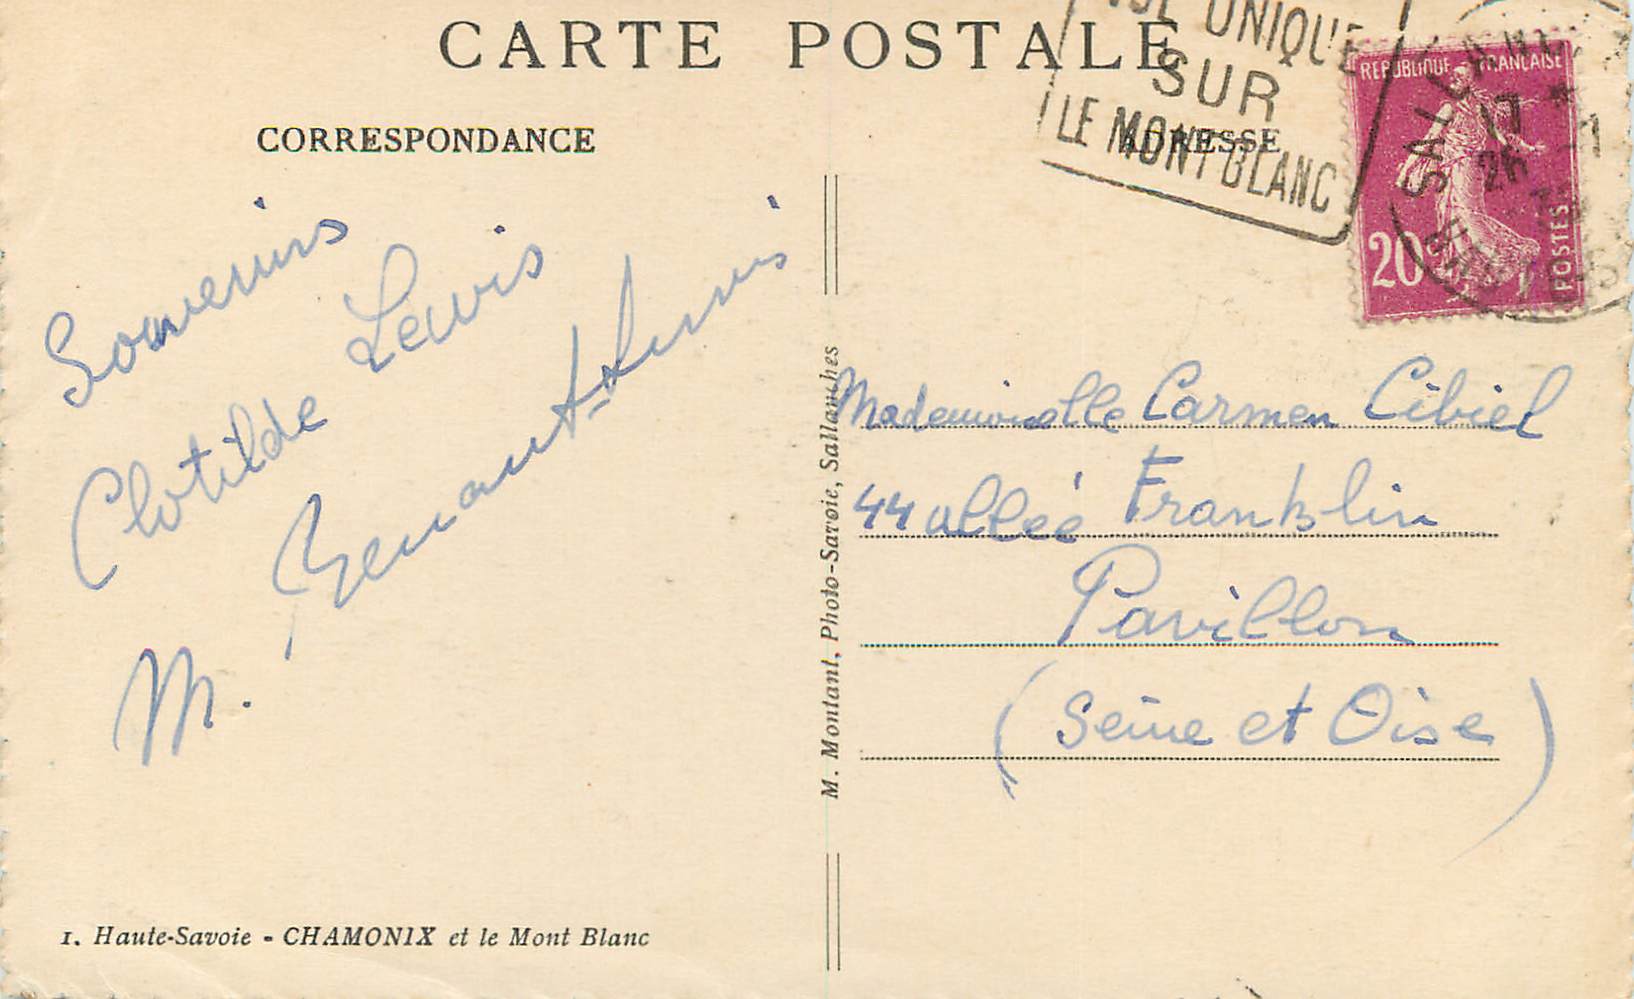 CARTE POSTALE
CORRESPONDANCE
Souvenirs
Clotilde Lewis
M.
1. Haute-Savoie - CHAMONIX et le Mont Blanc
M. Montant, Photo-Savoie, Sallanches
UNIQUE
SUR
LE MONT BLANC
ADRESSE
REPUBLIQUE FRANCAISE
20c
POSTES
SALLANCHES
17
26
Mademoiselle Carmen Cibiel
44 allée Franklin
Pavillon
(Seine et Oise)